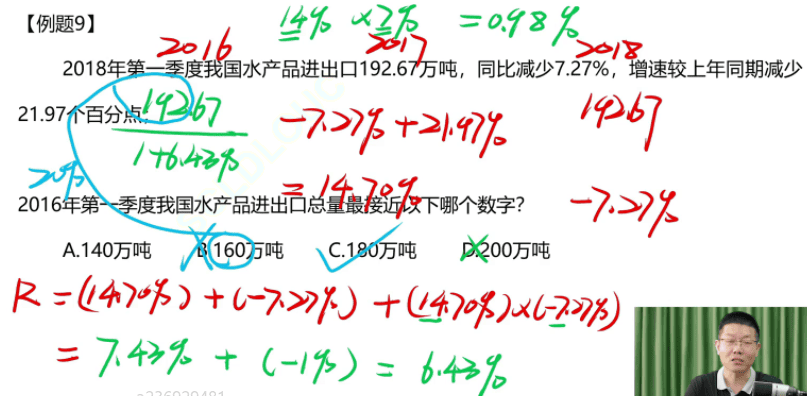 【例题9】 14% × 7% = 0.98%
2016 2017 2018
2018年第一季度我国水产品进出口192.67万吨，同比减少7.27%，增速较上年同期减少
21.97个百分点。
192.67 / 1+6.43% -7.27% + 21.97% 192.67
= 14.70% -7.27%
>20%
2016年第一季度我国水产品进出口总量最接近以下哪个数字？
A.140万吨 B.160万吨 C.180万吨 D.200万吨
R = (14.70%) + (-7.27%) + (14.70%)×(-7.27%)
= 7.43% + (-1%) = 6.43%